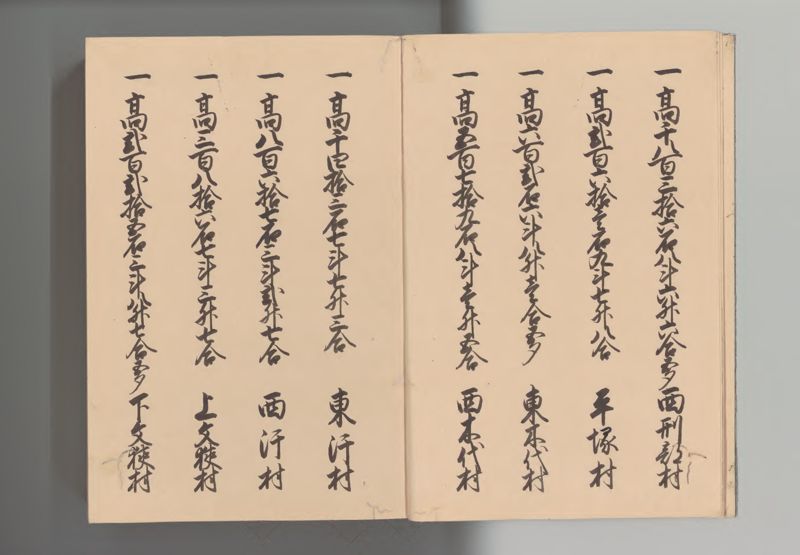 一 高千八百三拾六石八斗六升六合余 西刑部村
一 高弐百六拾壱石九斗七升八合 平塚村
一 高六百弐石六斗八升壱合余 東木代村
一 高五百七拾九石八斗壱升五合 西木代村
一 高千四拾三石七斗七升三合 東汗村
一 高八百六拾七石三斗弐升七合 西汗村
一 高三百八拾六石七斗三升七合 上文狭村
一 高弐百弐拾五石三斗八升七合余 下文狭村